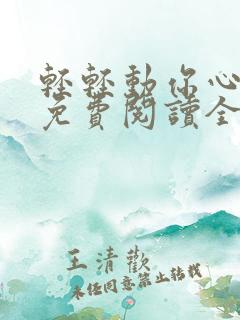 輕輕動你心
免費閱讀全
王清歡
未經同意禁止轉載